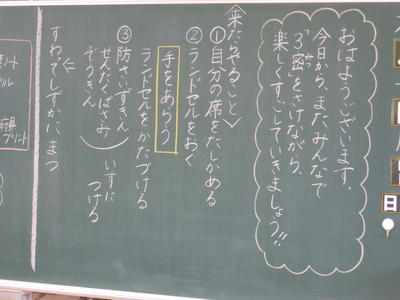 おはようございます。
今日から、またみんなで
"3密"をさけながら、
みつ
楽しくすごしていきましょう!!
<来たらやること>
①自分の席をたしかめる
②ランドセルをおく
手をあらう
ランドセルをかたづける
③防さいずきん
せんたくばさみ
ぞうきん
いすに
つける
すわってしずかにまつ
日
ノート
プリント